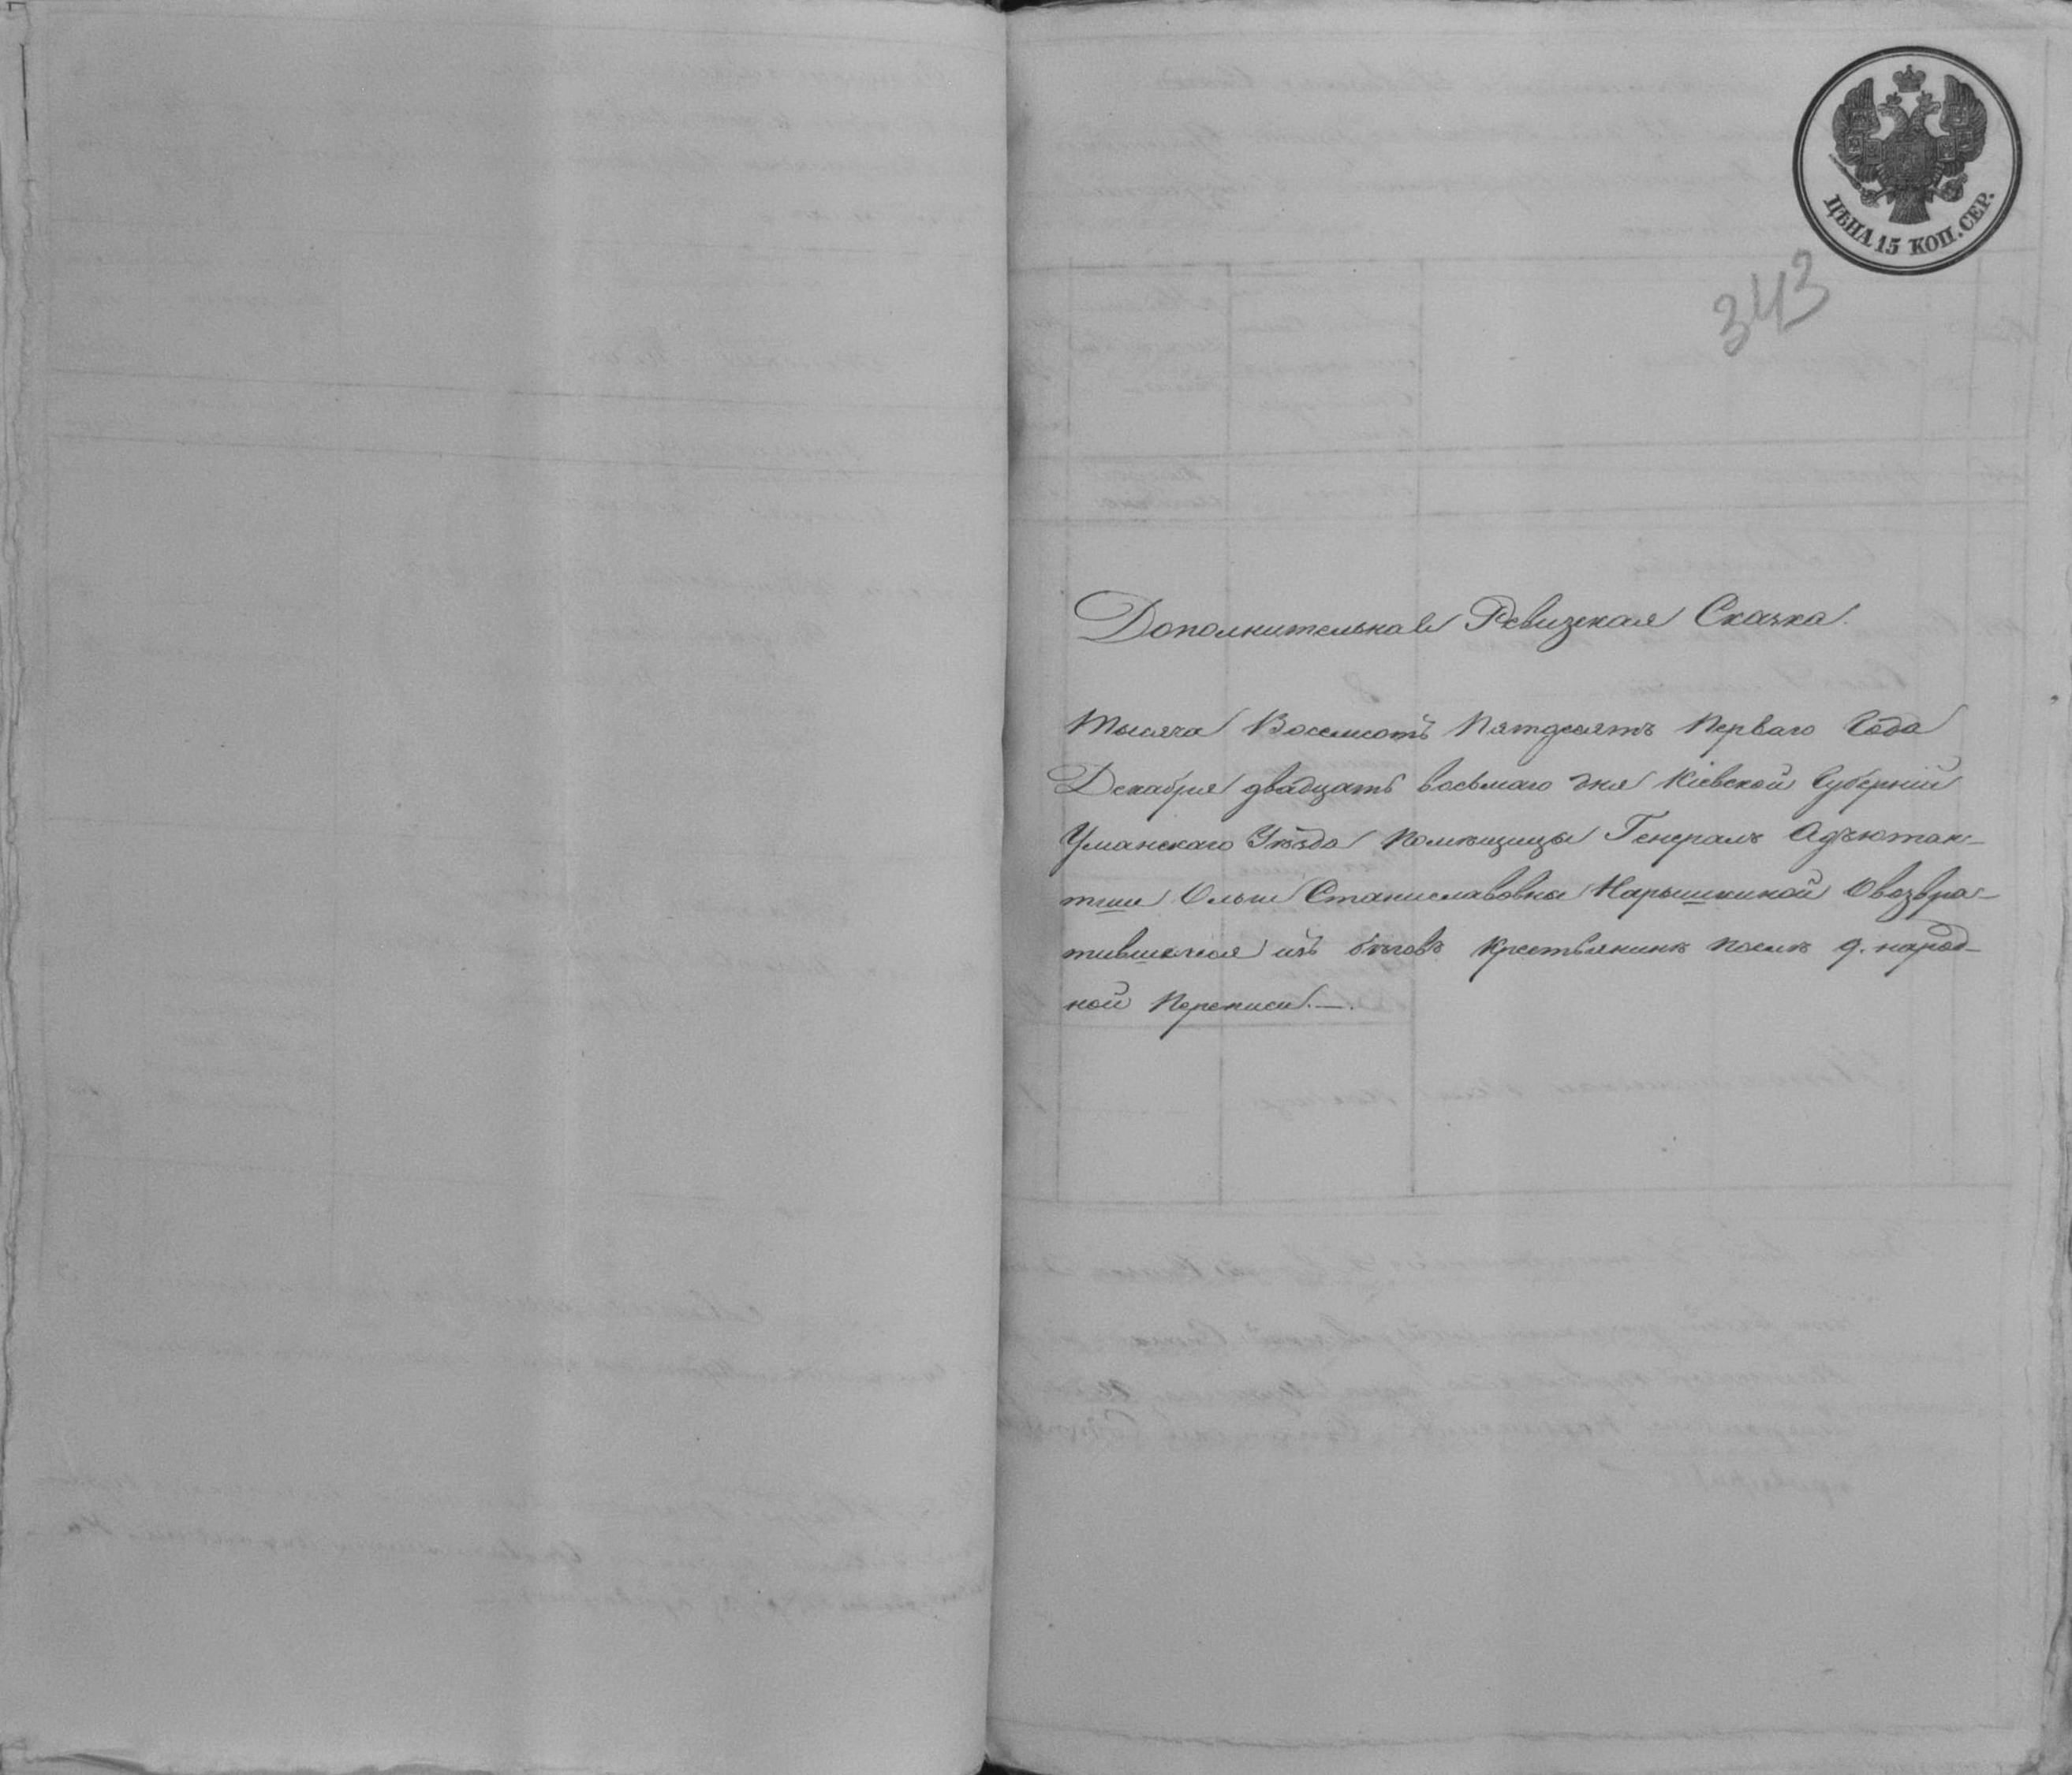 ЦѢНА 15 КОП. СЕР.
343
Дополнительная Ревизская Сказка.
Тысяча Восемсотъ Пятдесятъ Перваго Года
Декабря двадцать восьмаго дня Кіевской Губерніи
Уманскаго Уѣзда Помѣщицы Генералъ Адъютан-
тши Ольги Станиславовны Нарышкиной О возвра-
тившемся изъ бѣговъ крестьянинѣ послѣ 9. народ-
ной Переписи.—.